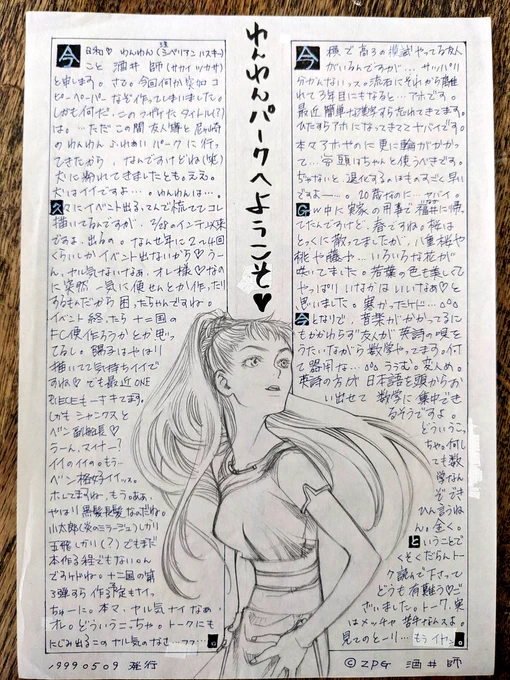 わんわんパークへようこそ♥
今日和♡ わんわん(シベリアンハスキー)
こと 酒井 師 (サカイ ツカサ)
と申します。さて。今回何か突如コ
ピーペーパーなぞ作ってしまいました。
しかも何だ、このフザけたタイトル(?)
は。…ただこの間 友人嬢と尼ヶ崎
のわんわん ふれあい パークに行っ
てきたから、なんですけどね(笑)
犬に溺れてきましたとも。ええ。
犬はイイですよ…。わんわんは…。
久々にイベント出る、てんで慌ててコレ
描いてるんですが、2/28のインテ以来
ですよ、出るの。なんせ年に2〜4回
くらいしかイベント出ないから♡うー
ん、ヤル気ないなぁ、オレ様♡なの
に突然 一気に便せんとか作ったり
するもんだから困ったちゃんですね。
イベント終ったら 十二国の
FC便作ろうかとか思っ
てるし。陽子はやはり
描いてて気持ちイイで
すね♡でも最近ONE
PIECEも一キてます。
しかもシャンクスと
ベン副船長♡
うーん、マイナー?
イイのイイの。もうー
ベン格好イイッス。
ホレてますわー、もう。ああ、
やはり黒髪長髪なのだね。
小太郎(炎のミラージュ)しかり
でもまだ
本作る程でもないのん
ですけどね。十二国の第
3弾すら作る予定もイ。
ちゅーに。本マ、ヤル気ナイなぁ、
オレ。どういうこっちゃ。トークにも
にじみ出るこのヤル気のなさ…フフ…。
1999 05 09 発行
今横で高3の模試やってる友人
がいるんですが…サッパリ
分かんないッス。流石にそれから離
れて3年目にもなると…アホです。
最近簡単な漢字すら忘れてきてます。
ひたすらアホになってきててヤバイです。
本々アホやのに更に輪がかかっ
て…。常頭はちゃんと使うべきです。
ちゃないと退化するのはものすごく早い
ですよー…。20歳なのに…ヤバイ。
GW中に実家の用事で福井に帰
てたんですけど、春ですね。桜は
とっくに散ってましたが、八重桜や
桃や藤や…いろいろな花が
咲いてました。若葉の色も美しくて
やっぱり いなかは いいなぁ♡と
思いました。寒かったけど…。
今となりで、音楽がかかってるに
もかかわらず友人が英詩の唄を
うたいながら数学やってます。何
て器用な…ううむ。変人め。
英詩の方が 日本語を頭からお
い出せて 数学に 集中でき
るそうですよ。
どういうこっ
ちゃ。何し
ても数
学なん
ぞでき
ひん言うね
ん。全く。
ということで
くそくだらんトー
ク読んで下さって
どうも有難う♡ご
ざいました。トーク、実
はメッチャ 苦手なんスよ。
見てのとーり…もうイヤン。
©ZPG 酒井師